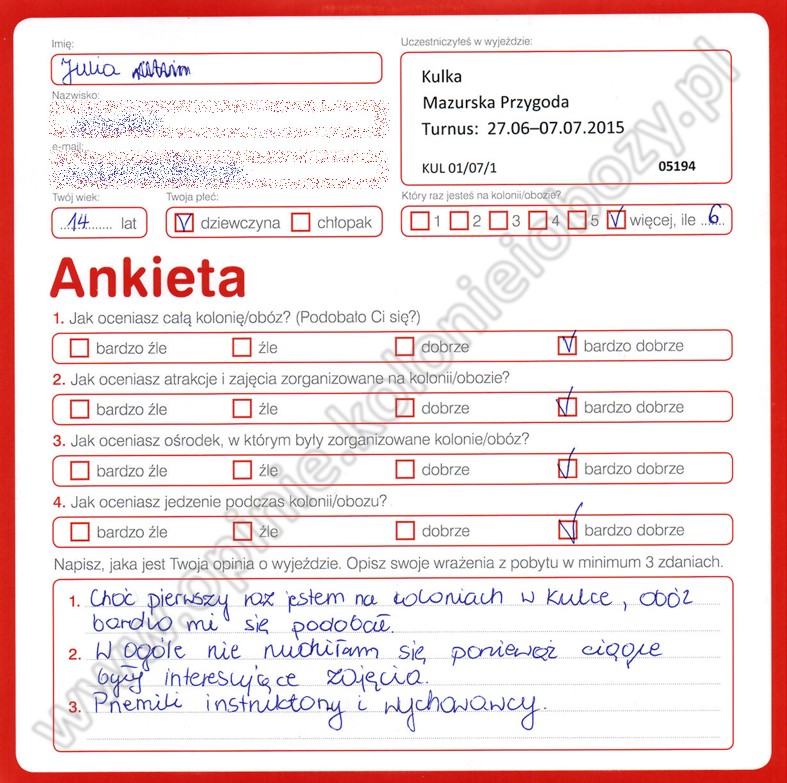 Imię:
Julia
Uczestniczyłeś w wyjeździe:
Kulka
Mazurska Przygoda
Turnus: 27.06–07.07.2015
KUL 01/07/1 05194
Nazwisko:
e-mail:
Twój wiek:
14 lat
Twoja płeć:
dziewczyna chłopak
Który raz jesteś na kolonii/obozie?
1 2 3 4 5 więcej, ile 6
Ankieta
1. Jak oceniasz całą kolonię/obóz? (Podobało Ci się?)
bardzo źle źle dobrze bardzo dobrze
2. Jak oceniasz atrakcje i zajęcia zorganizowane na kolonii/obozie?
bardzo źle źle dobrze bardzo dobrze
3. Jak oceniasz ośrodek, w którym były zorganizowane kolonie/obóz?
bardzo źle źle dobrze bardzo dobrze
4. Jak oceniasz jedzenie podczas kolonii/obozu?
bardzo źle źle dobrze bardzo dobrze
Napisz, jaka jest Twoja opinia o wyjeździe. Opisz swoje wrażenia z pobytu w minimum 3 zdaniach.
1. Choć pierwszy raz jestem na koloniach w Kulce, obóz
bardzo mi się podobał.
2. W ogóle nie nudziłam się ponieważ ciągle
były interesujące zajęcia.
3. Przemili instruktorzy i wychowawcy.
www.opinie.kolonieiobozy.pl